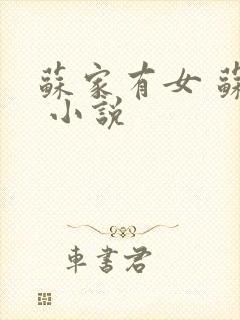 蘇家有女 蘇
小說
車書君